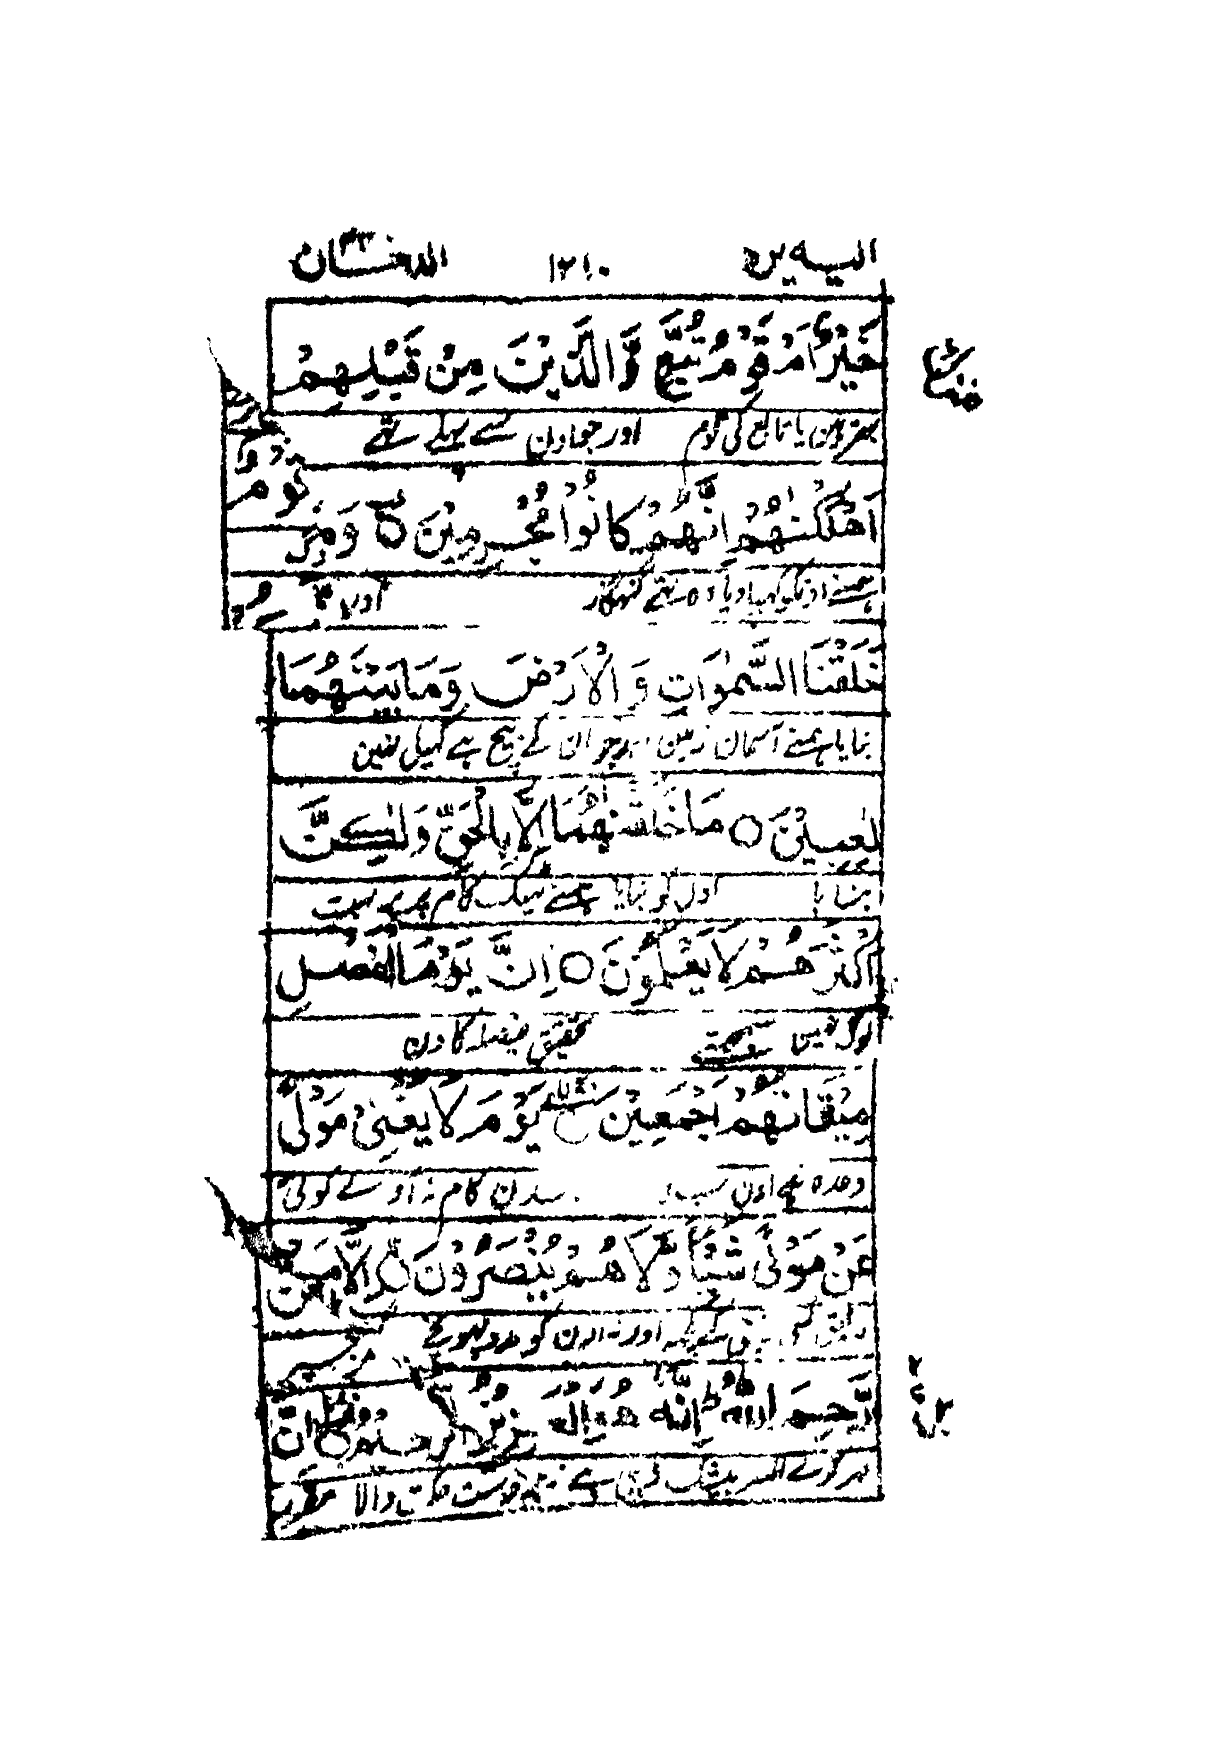 الیه یرد ۱۲۱۰ الدخان ۴۴
خَيْرٌ اَمْ قَوْمُ تُبَّعٍ وَّالَّذِيْنَ مِنْ قَبْلِهِمْ
بہتر ہین یا تبع کی قوم اور جو اون سے پہلے تھے
اَهْلَكْنٰهُمْ اِنَّهُمْ كَانُوْا مُجْرِمِيْنَ ○ وَمَا
ہمنے اونکو کھپا دیا وہ تھے گنہگار اور ہم
خَلَقْنَا السَّمٰوَاتِ وَالْاَرْضَ وَمَا بَيْنَهُمَا
بنایا ہمنے آسمان زمین جو ان کے بیچ ہے کھیل نہین
لٰعِبِيْنَ ○ مَا خَلَقْنٰهُمَا اِلَّا بِالْحَقِّ وَلٰكِنَّ
بنایا اون کو بنایا ہمنے ٹھیک کام پر پر بہت
اَكْثَرَهُمْ لَا يَعْلَمُوْنَ ○ اِنَّ يَوْمَ الْفَصْلِ
لوگ نہین سمجھتے تحقیق فیصلہ کا دن
مِيْقَاتُهُمْ اَجْمَعِيْنَ يَوْمَ لَا يُغْنِيْ مَوْلًى
وعدہ ہے اون سب دن کام نہ آوے کوئی
عَنْ مَّوْلًى شَيْئًا وَّلَا هُمْ يُنْصَرُوْنَ اِلَّا مَنْ
رفیق کسی رفیق کے کچھہ اور نہ اون کو مدد پہونچے
رَّحِمَ اللّٰهُ اِنَّهٗ هُوَ الْعَزِيْزُ الرَّحِيْمُ ○ اِنَّ
مہر کرے اللہ بیشک وہی ہے زبردست حکمت والا مقرر